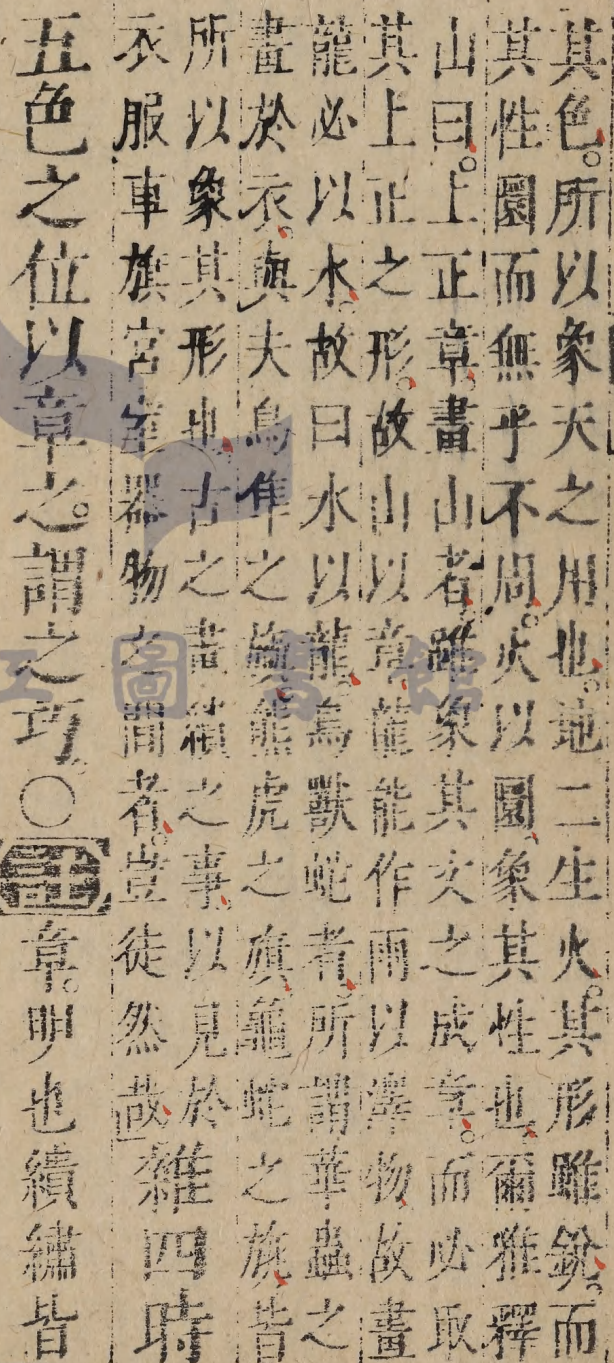 其色。所以象天之用也。地二生火。其形雖銳。而
其性圜而無乎不周。火以圜象其性也。爾雅釋
山曰。上正章。畫山者。雖象其文之成章。而必取
其上正之形。故山以章。龍能作雨以澤物。故畫
龍必以水。故曰水以龍。鳥獸蛇者。所謂華蟲之
畫於衣。與夫鳥隼之旟。熊虎之旗。龜蛇之旐。皆
所以象其形也。古之畫繢之事。以見於
衣服車旗宮室器物之間者。豈徒然哉。雜四時
五色之位以章之。謂之巧。○
章。明也繢繡皆
圖書館